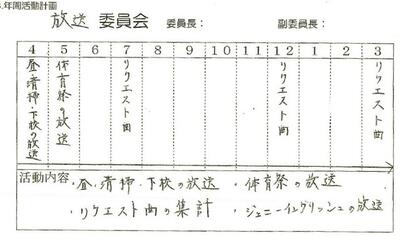 年間活動計画
放送 委員会 委員長： 副委員長：
4 5 6 7 8 9 10 11 12 1 2 3
昼・清掃・下校の放送
体育祭の放送
リクエスト曲
リクエスト曲
リクエスト曲
活動内容 ・昼・清掃・下校の放送 ・体育祭の放送
・リクエスト曲の集計 ・ジェニーイングリッシュの放送